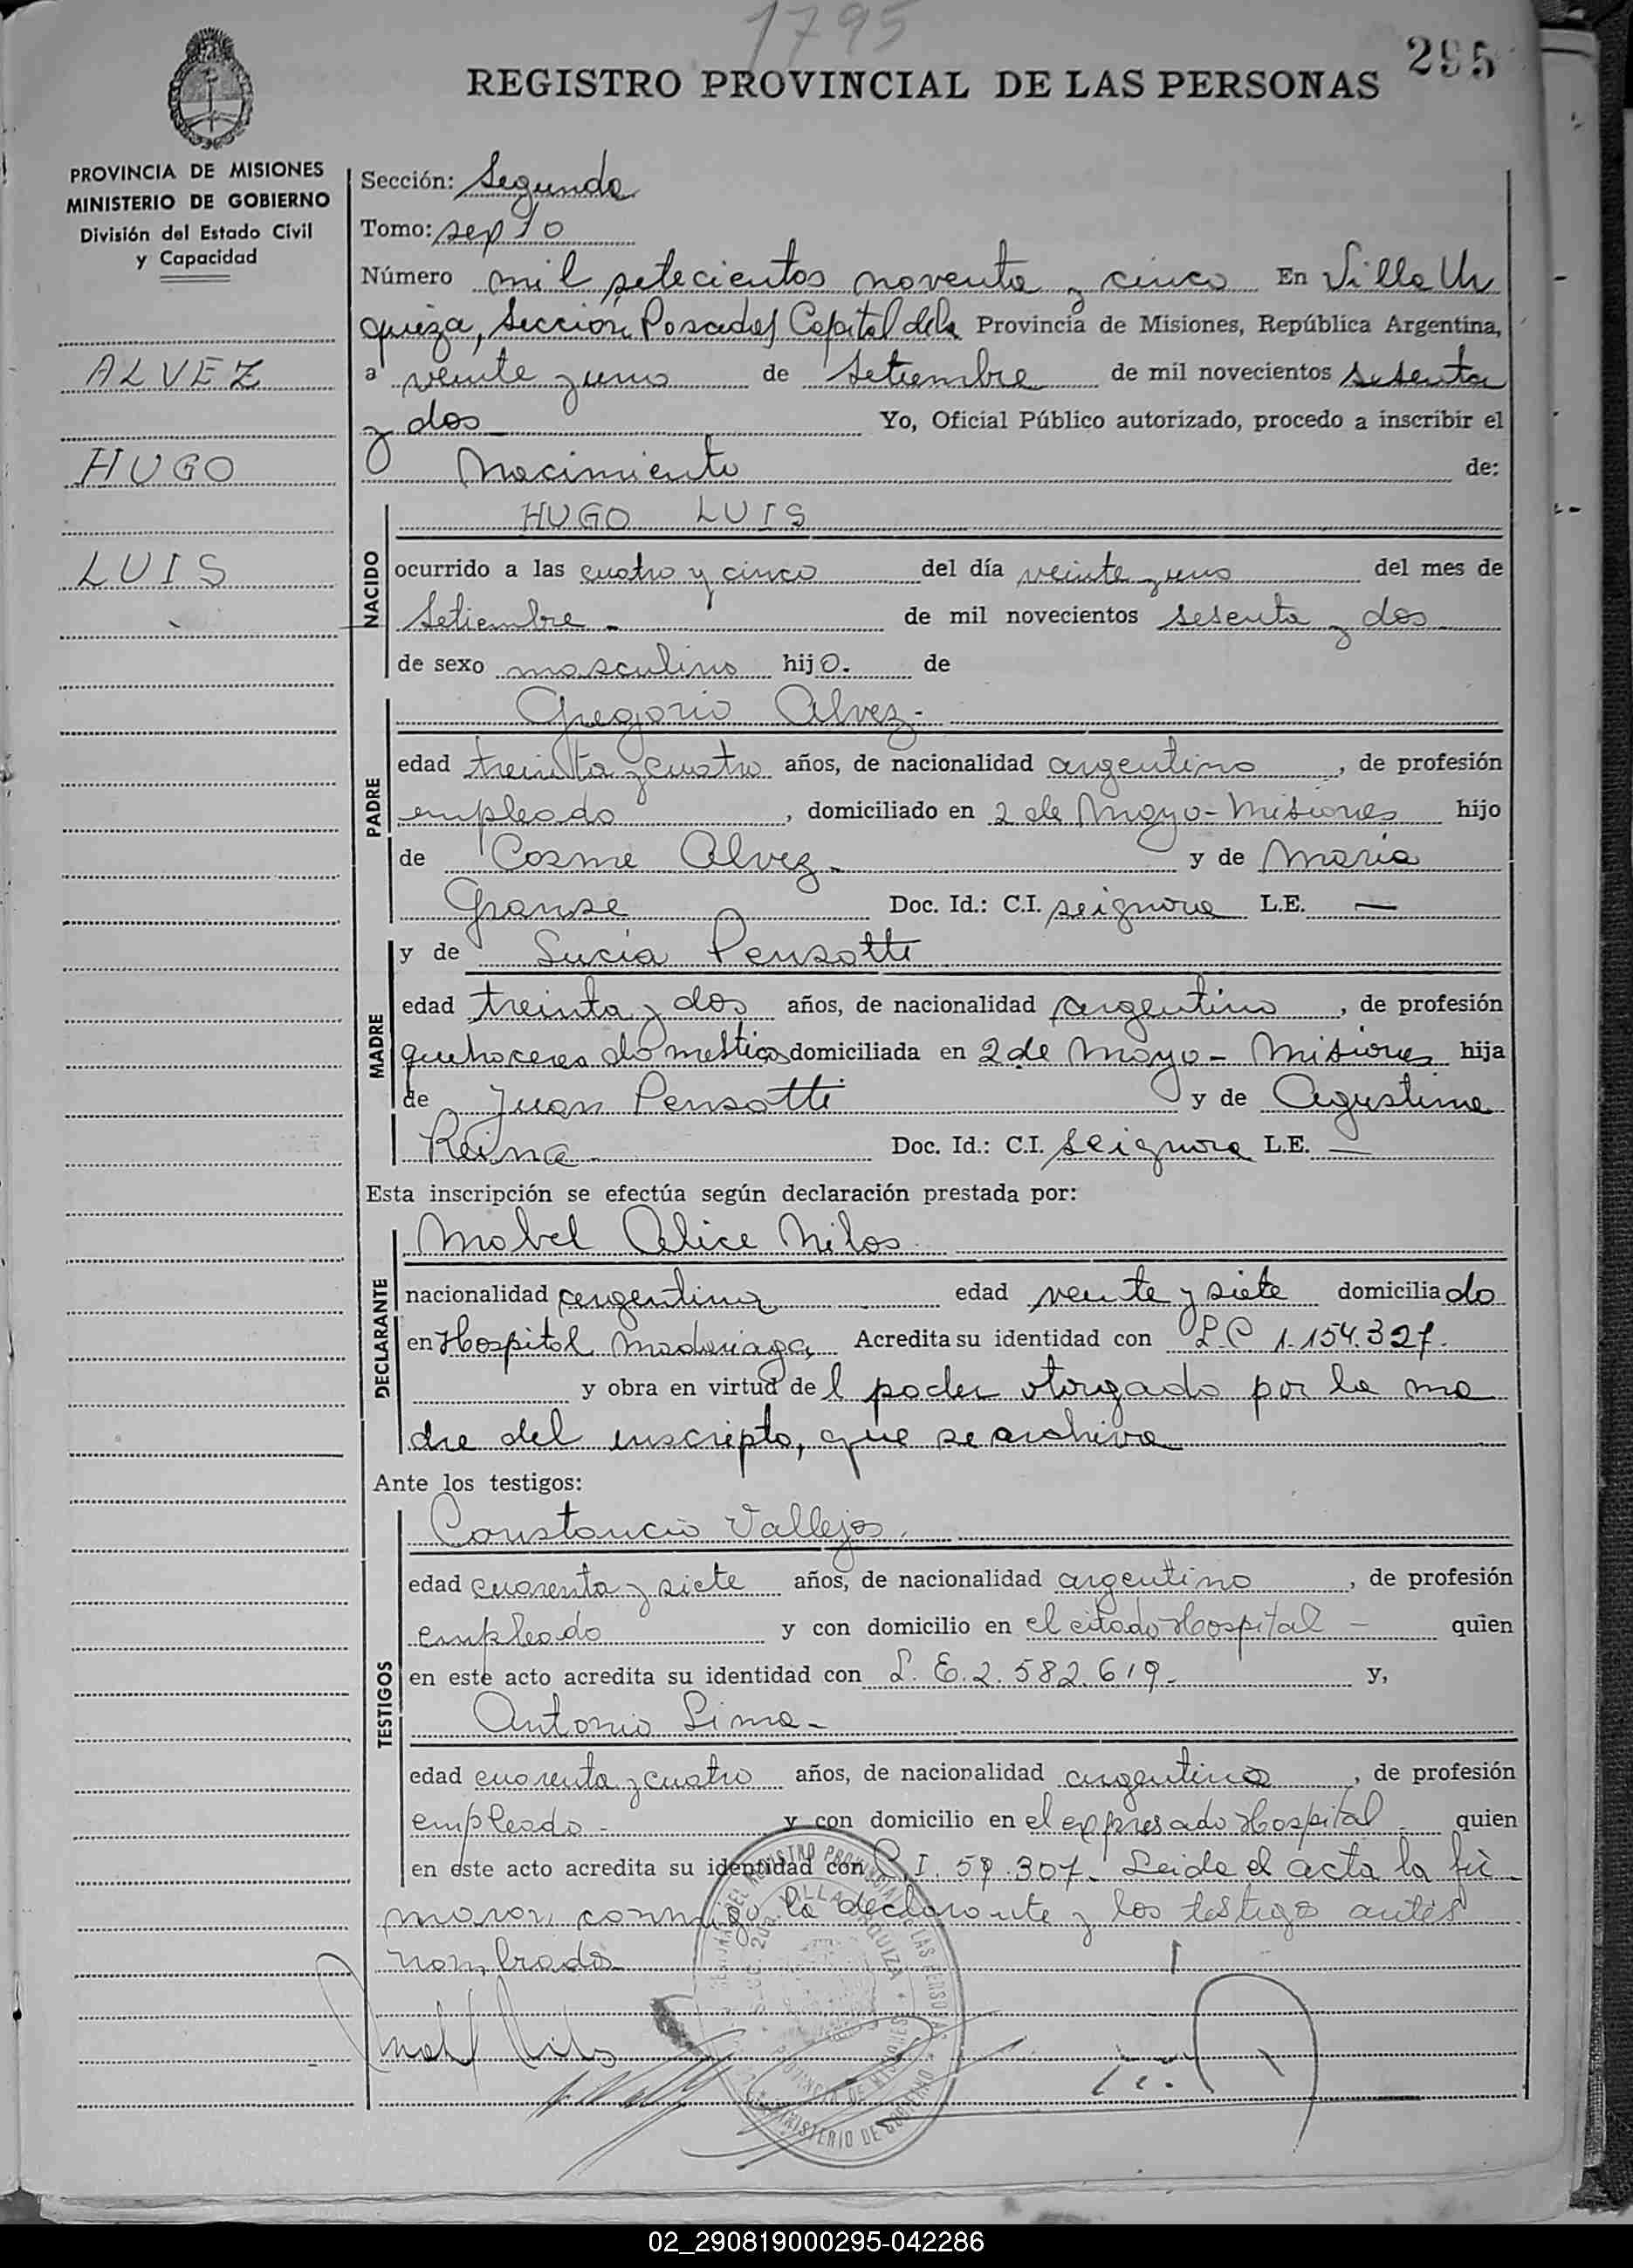 1795
295
REGISTRO PROVINCIAL DE LAS PERSONAS
PROVINCIA DE MISIONES
MINISTERIO DE GOBIERNO
División del Estado Civil
y Capacidad
ALVEZ
HUGO
LUIS
Sección: Segunda
Tomo: sep 10
Número mil setecientos noventa y cinco En Villa Ur
quiza, Sección Posadas Capital de la Provincia de Misiones, República Argentina,
a veinte y uno de Setiembre de mil novecientos sesenta
y dos Yo, Oficial Público autorizado, procedo a inscribir el
Nacimiento de:
NACIDO
HUGO LUIS
ocurrido a las cuatro y cinco del día veinte y uno del mes de
Setiembre - de mil novecientos sesenta y dos
de sexo masculino hijo. de
PADRE
Gregorio Alvez -
edad treinta y cuatro años, de nacionalidad argentino, de profesión
empleado, domiciliado en 2 de Mayo - Misiones hijo
de Cosme Alvez - y de María
Granse Doc. Id.: C.I. se ignora L.E. —
MADRE
y de Lucia Pensotti
edad treinta y dos años, de nacionalidad argentina, de profesión
quehaceres domésticos domiciliada en 2 de Mayo - Misiones hija
de Juan Pensotti y de Agustina
Reina - Doc. Id.: C.I. se ignora L.E. —
Esta inscripción se efectúa según declaración prestada por:
DECLARANTE
Mabel Alice Milos
nacionalidad argentina edad veinte y siete domiciliado
en Hospital Madariaga, Acredita su identidad con L.C 1.154.327.
y obra en virtud del poder otorgado por la ma
dre del inscripto, que se archiva
Ante los testigos:
TESTIGOS
Constancio Vallejos,
edad cuarenta y siete años, de nacionalidad argentino, de profesión
empleado y con domicilio en el citado Hospital - quien
en este acto acredita su identidad con L.E. 2.582.619. y,
Antonio Lima -
edad cuarenta y cuatro años, de nacionalidad argentino, de profesión
empleado - y con domicilio en el expresado Hospital quien
en este acto acredita su identidad con C.I. 59.307. Leida el acta la fir
maron conmigo la declarante y los testigos antes
nombrados
VILLA URQUIZA
PROVINCIA DE MISIONES
MINISTERIO DE GOBIERNO
02_290819000295-042286